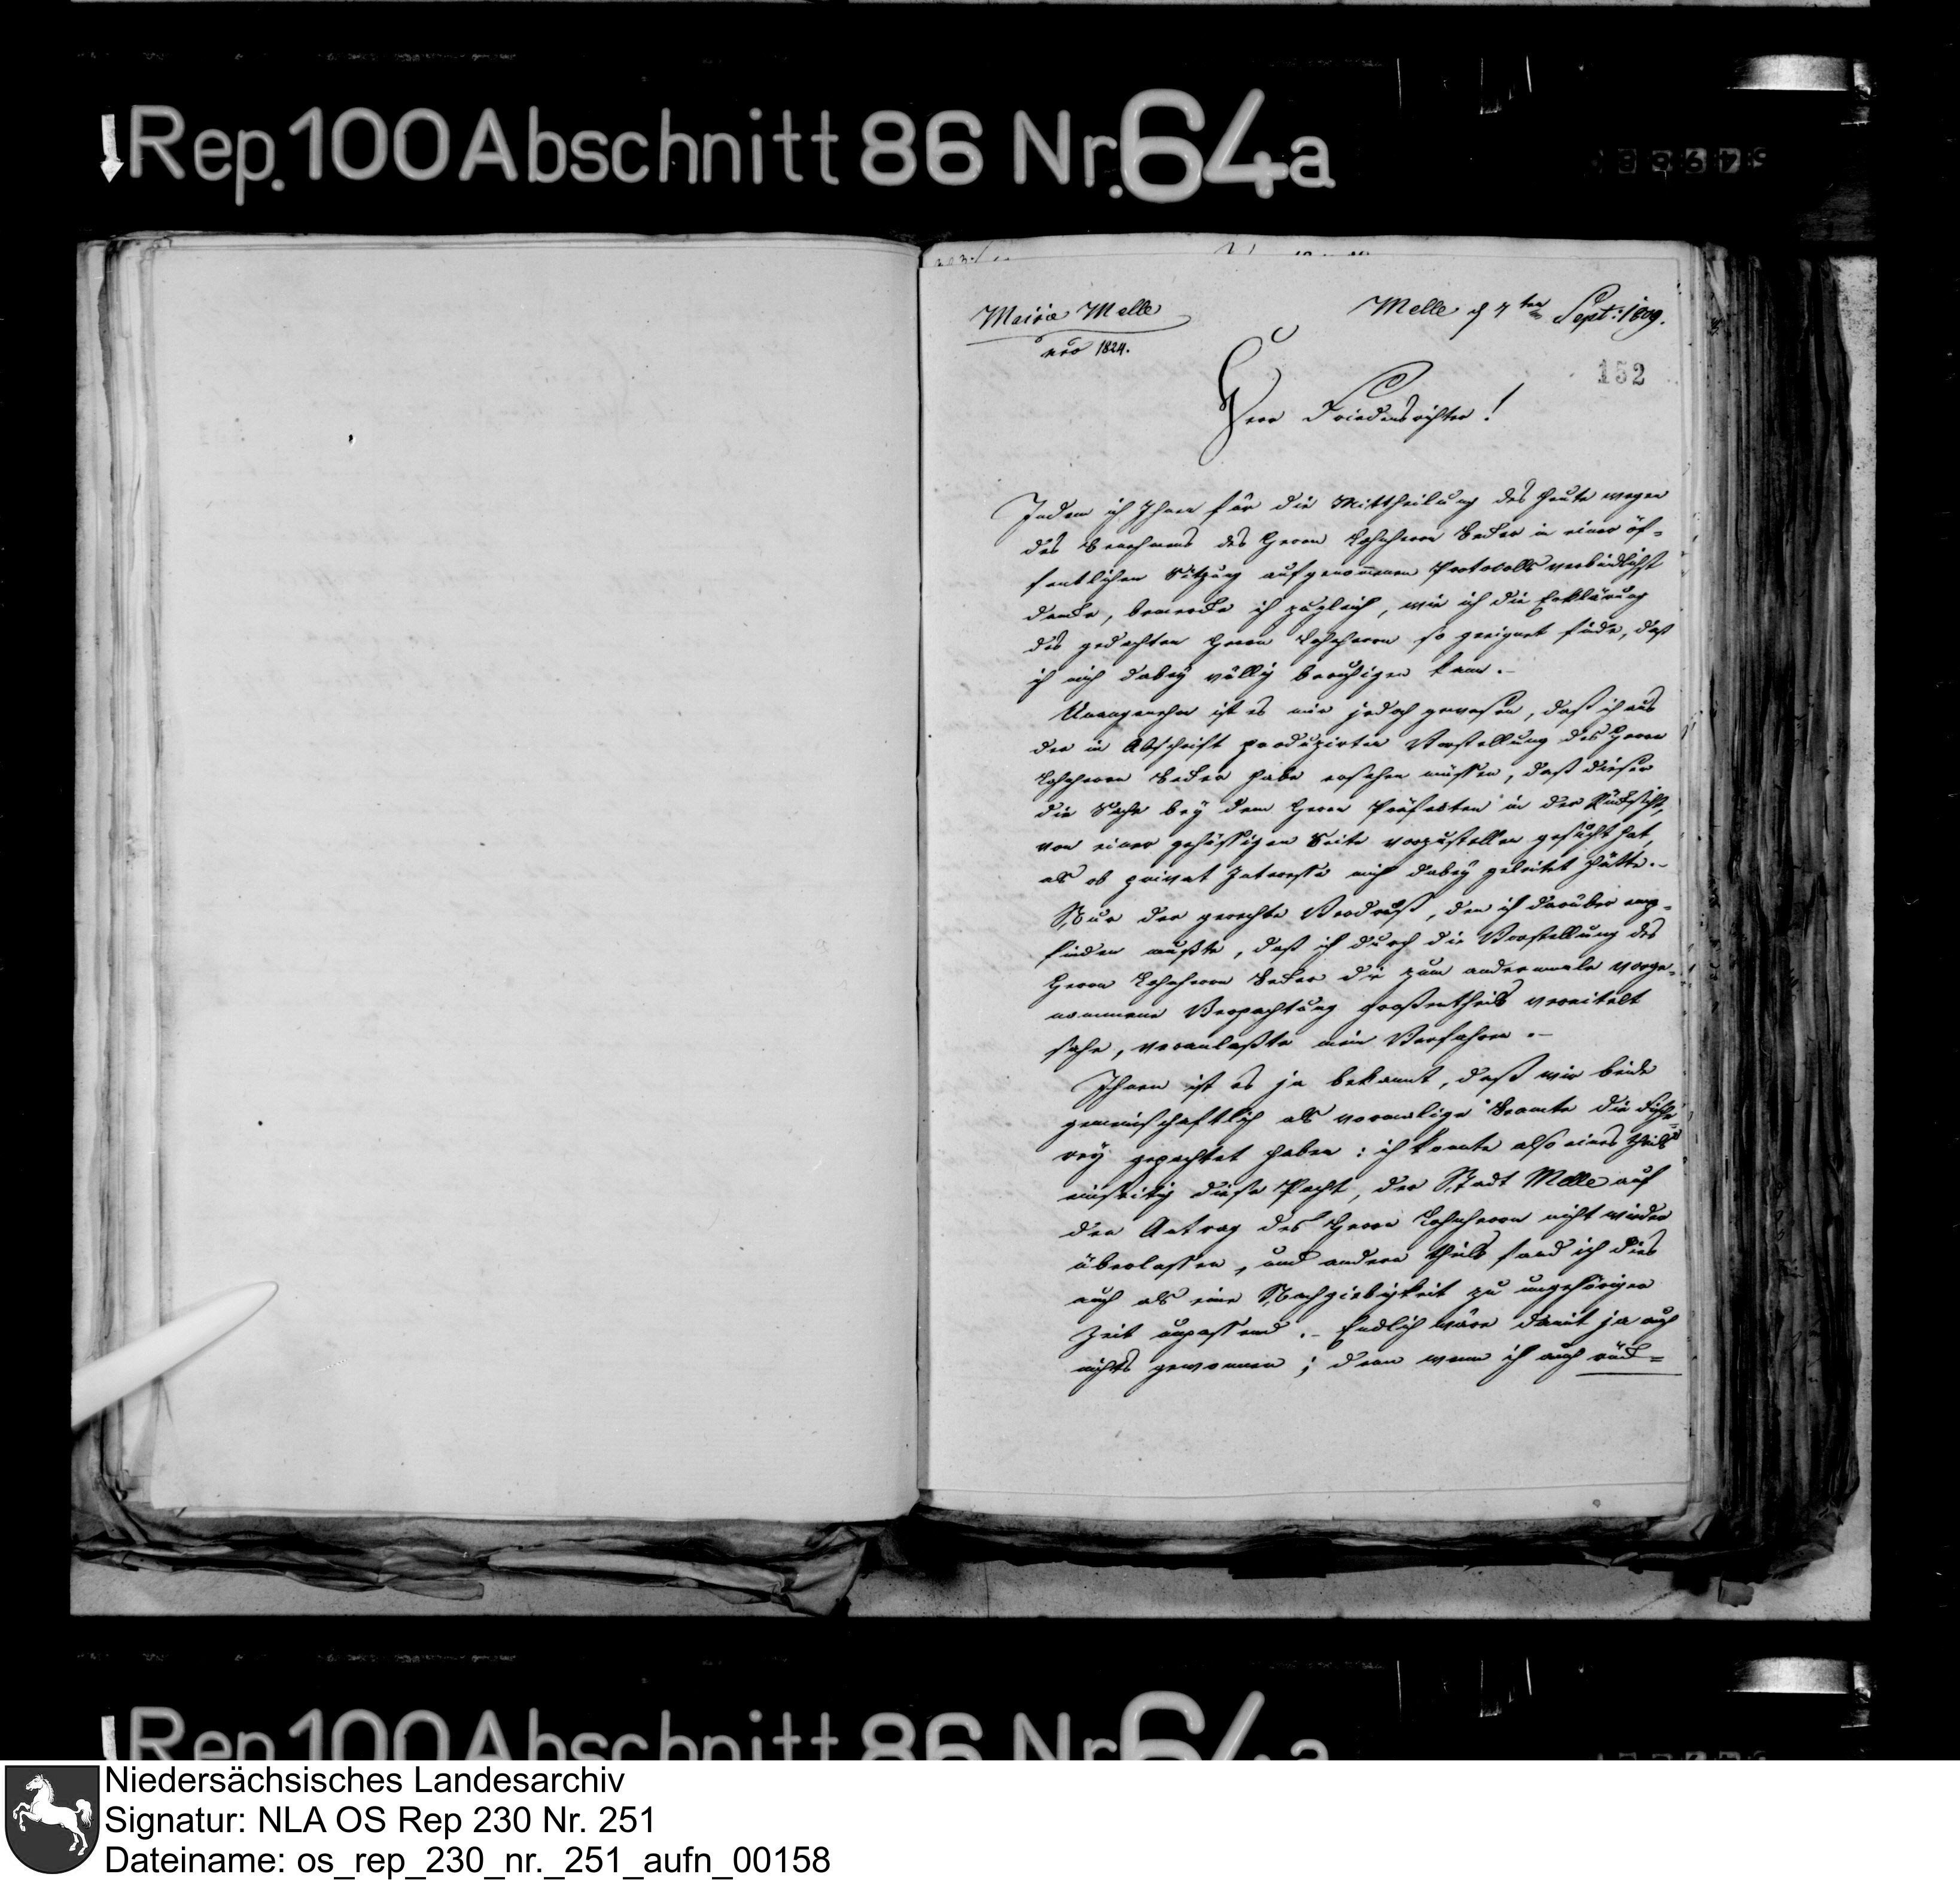 Rep. 100 Abschnitt 86 Nr. 64a
Mairie Melle
nro 1824.
Melle d 7ten Sept: 1809.
152
Herr Friedensrichter!
Indem ich Ihnen für die Mittheilung des heute wegen
des Benehmens des Herrn Lohnherrn Beker in einer öf-
fentlichen Sitzung aufgenommenen Protocolls verbindlichst
danke, bemerke ich zugleich, wie ich die Erklärung
des gedachten Herrn Lohnherrn so geeignet finde, daß
ich mich dabey völlig beruhigen kann.-
Unangenehm ist es mir jedoch gewesen, daß ich aus
der in Abschrift produzirten Vorstellung des Herrn
Lohnherrn Beker habe ersehen müssen, daß dieser
die Sache bey dem Herrn Präfekten in der Rücksicht,
von einer gehässigen Seite vorzustellen gesucht hat,
als ob privat Interesse mich dabey geleitet hätte.-
Nur der gerechte Verdruß, den ich darüber emp-
finden mußte, daß ich durch die Vorstellung des
Herrn Lohnherrn Beker die zum andermale vorge-
nommene Verpachtung großentheils vereitelt
sahe, veranlaßte mein Verfahren.-
Ihnen ist es ja bekannt, daß wir beide
gemeinschaftlich als vormalige Beamte die Fische-
rey gepachtet haben: ich konnte also eines theils
einseitig diese Pacht, der Stadt Melle auf
den Antrag des Herrn Lohnherrn nicht wieder
überlassen, und andern theils fand ich dies
auch als eine Nachgiebigkeit zu ungehöriger
Zeit unpassend.- Endlich wäre damit ja auch
nichts gewonnen; denn wenn ich auch rück-
Rep. 100 Abschnitt 86 Nr. 64a
Niedersächsisches Landesarchiv
Signatur: NLA OS Rep 230 Nr. 251
Dateiname: os_rep_230_nr._251_aufn_00158